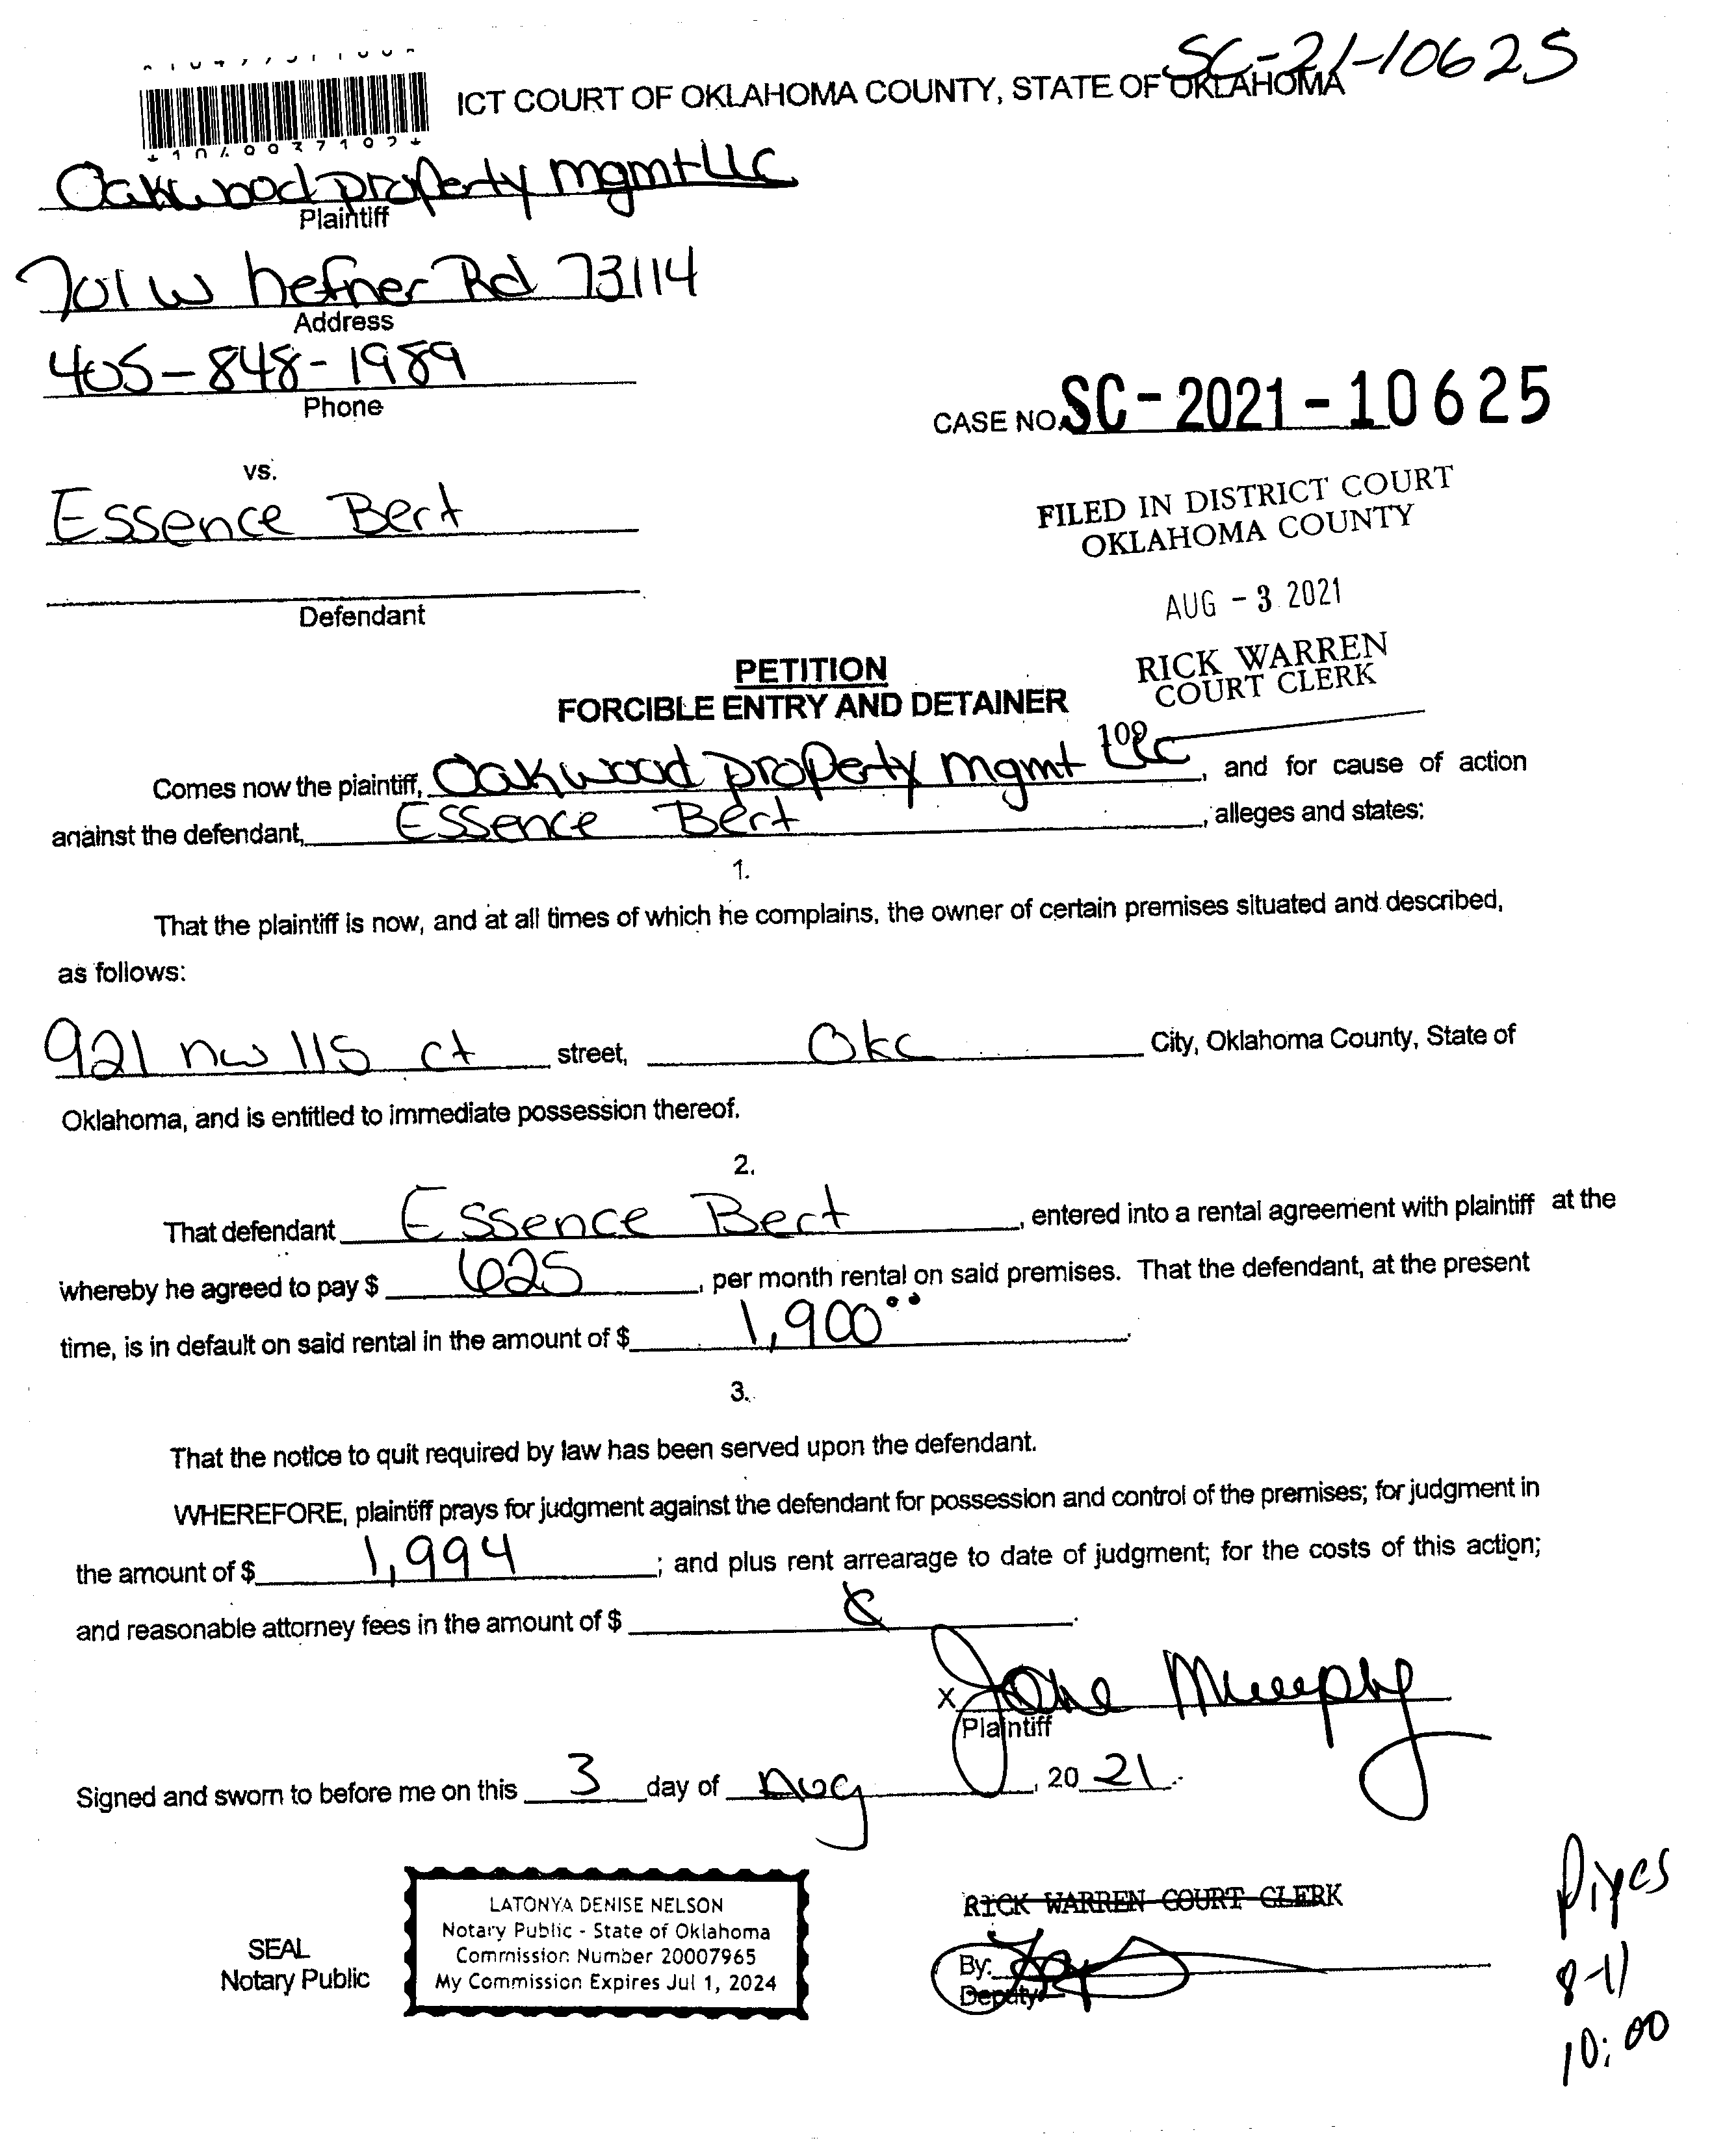 SC-21-10625
ICT COURT OF OKLAHOMA COUNTY, STATE OF OKLAHOMA
Oakwood property mgmt LLC
Plaintiff
701 W hefner Rd 73114
Address
405-848-1989
Phone
CASE NO. SC-2021-10625
vs.
Essence Bert
FILED IN DISTRICT COURT
OKLAHOMA COUNTY
Defendant
AUG - 3 2021
RICK WARREN
COURT CLERK
PETITION
FORCIBLE ENTRY AND DETAINER
109
Comes now the plaintiff, Oakwood property mgmt LLC, and for cause of action
against the defendant, Essence Bert, alleges and states:
1.
That the plaintiff is now, and at all times of which he complains, the owner of certain premises situated and described,
as follows:
921 nw 115 ct street, Okc City, Oklahoma County, State of
Oklahoma, and is entitled to immediate possession thereof.
2.
That defendant Essence Bert, entered into a rental agreement with plaintiff at the
whereby he agreed to pay $ 625, per month rental on said premises. That the defendant, at the present
time, is in default on said rental in the amount of $ 1,900.00.
3.
That the notice to quit required by law has been served upon the defendant.
WHEREFORE, plaintiff prays for judgment against the defendant for possession and control of the premises; for judgment in
the amount of $ 1,994; and plus rent arrearage to date of judgment; for the costs of this action;
and reasonable attorney fees in the amount of $
X Jane Murphy
Plaintiff
Signed and sworn to before me on this 3 day of Aug, 20 21.
SEAL
Notary Public
LATONYA DENISE NELSON
Notary Public - State of Oklahoma
Commission Number 20007965
My Commission Expires Jul 1, 2024
RICK WARREN COURT CLERK
By:
Deputy
8-11
10:00